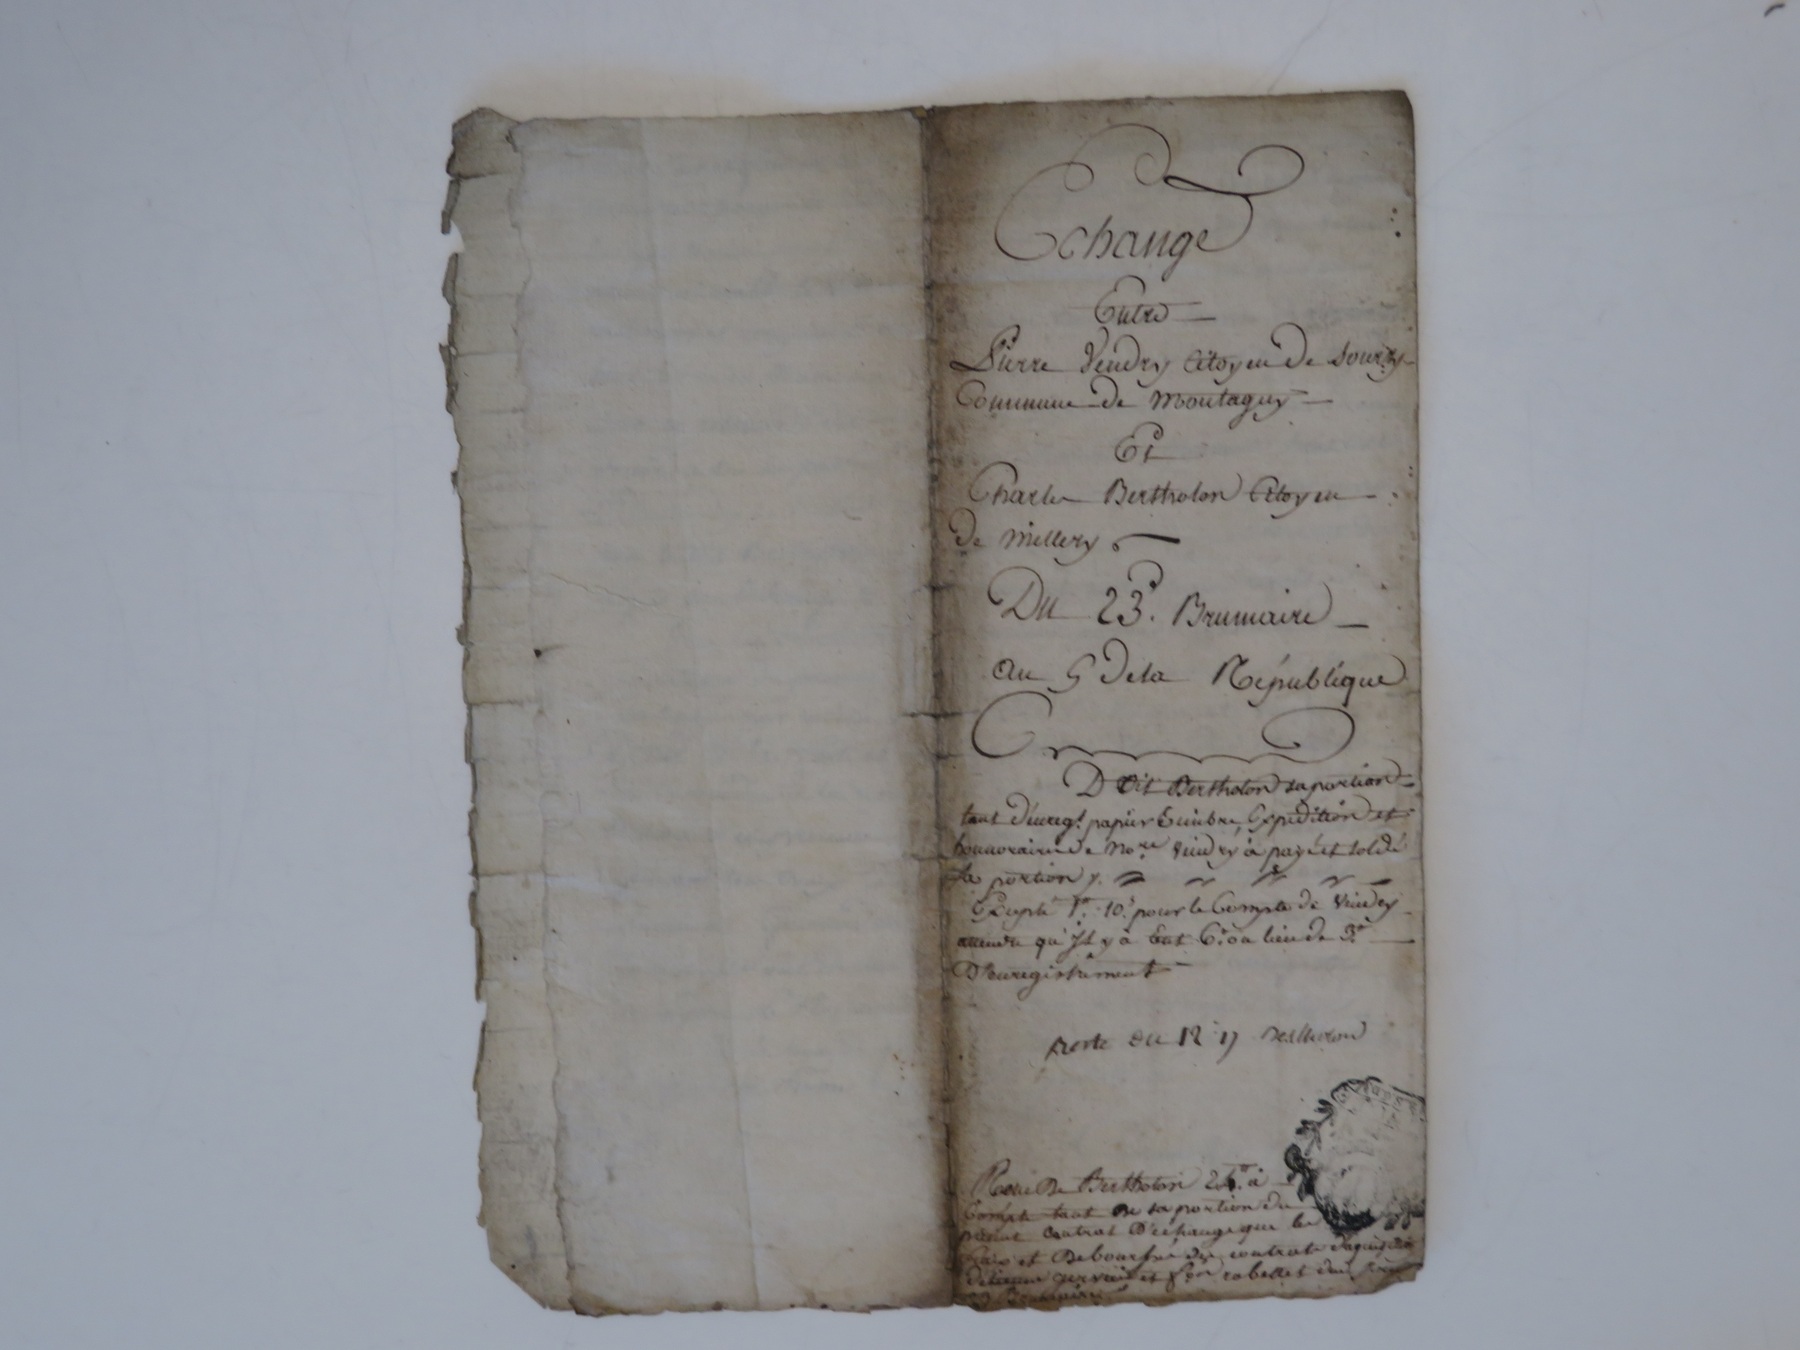 Echange
Entre
Pierre Vendry Citoyen De Sourzy
Commune de Montagny
Et
Charles Bertholon Citoyen
de millery
Du 23. Brumaire
an 5 de la République
Doit Bertholon sa portion
tant d'enreg.t papier timbre, Expedition et
honnoraires de No.re Vindry a payé et soldé
sa portion
Excepté 1.tt 10.s pour le Compte de Vindry
attendu qu'Il y à Eut 6.tt au lieu de 3.tt
D'enregistrement
reste du 12
Reçu De Bertholon 24.tt à
Compte tant de sa portion du
présent contrat D'échange que les
frais et Deboursés des contrats